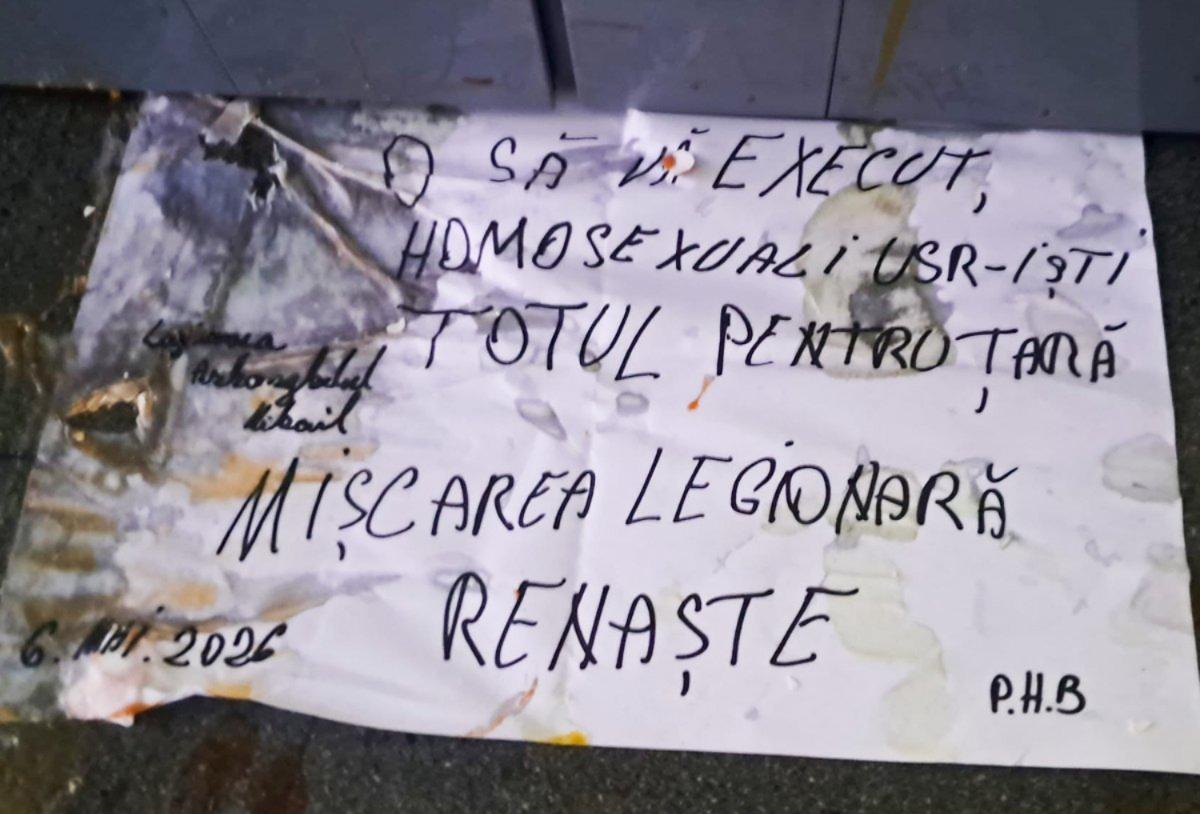 O SĂ VĂ EXECUT,
HOMOSEXUALi USR-iȘTi
TOTUL PENTRU ȚARĂ
Mihail
MIȘCAREA LEGIONARĂ
RENAȘTE
6. MAI. 2026
P.H.B